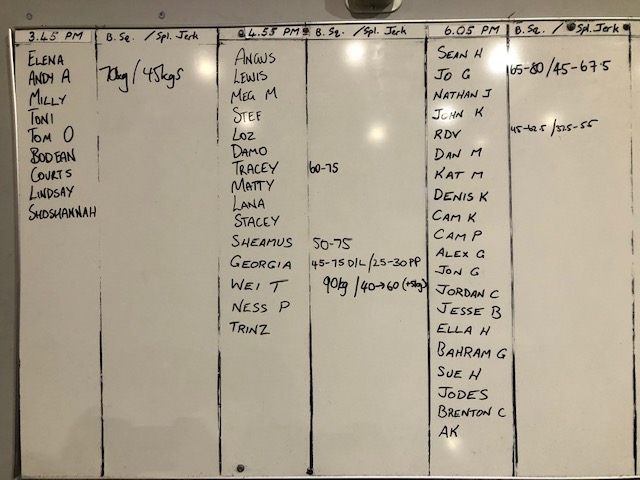 3.45 PM
B. Sq. / Spl. Jerk
ELENA
ANDY A 70kg / 45kgs
MILLY
TONI
TOM O
BODEAN
COURTS
LINDSAY
SHOSHANNAH
4.55 PM
B. Sq. / Spl. Jerk
ANGUS
LEWIS
MEG M
STEF
LOZ
DAMO
TRACEY 60-75
MATTY
LANA
STACEY
SHEAMUS 50-75
GEORGIA 45-75 D/L / 25-30 PP
WEI T 90kg / 40→60 (+5kg)
NESS P
TRINZ
6.05 PM
B. Sq. / Spl. Jerk
SEAN H
JO G 65-80 / 45-67.5
NATHAN J
JOHN K
RDV 45-62.5 / 32.5-55
DAN M
KAT M
DENIS K
CAM K
CAM P
ALEX G
JON G
JORDAN C
JESSE B
ELLA H
BAHRAM G
SUE H
JODES
BRENTON C
AK